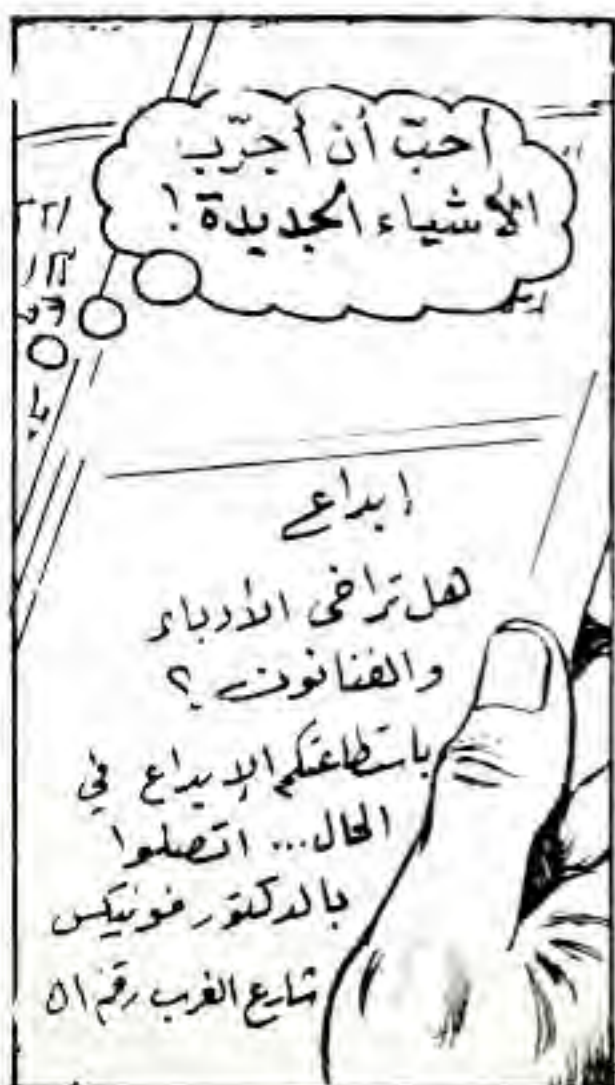 أحبّ أن أجرّب
الأشياء الجديدة !
إبداع
هل تراخى الأدباء
والفنانون ؟
باستطاعتكم الإبداع في
الحال... اتصلوا
بالدكتور فونيكس
شارع الغرب رقم ٥١